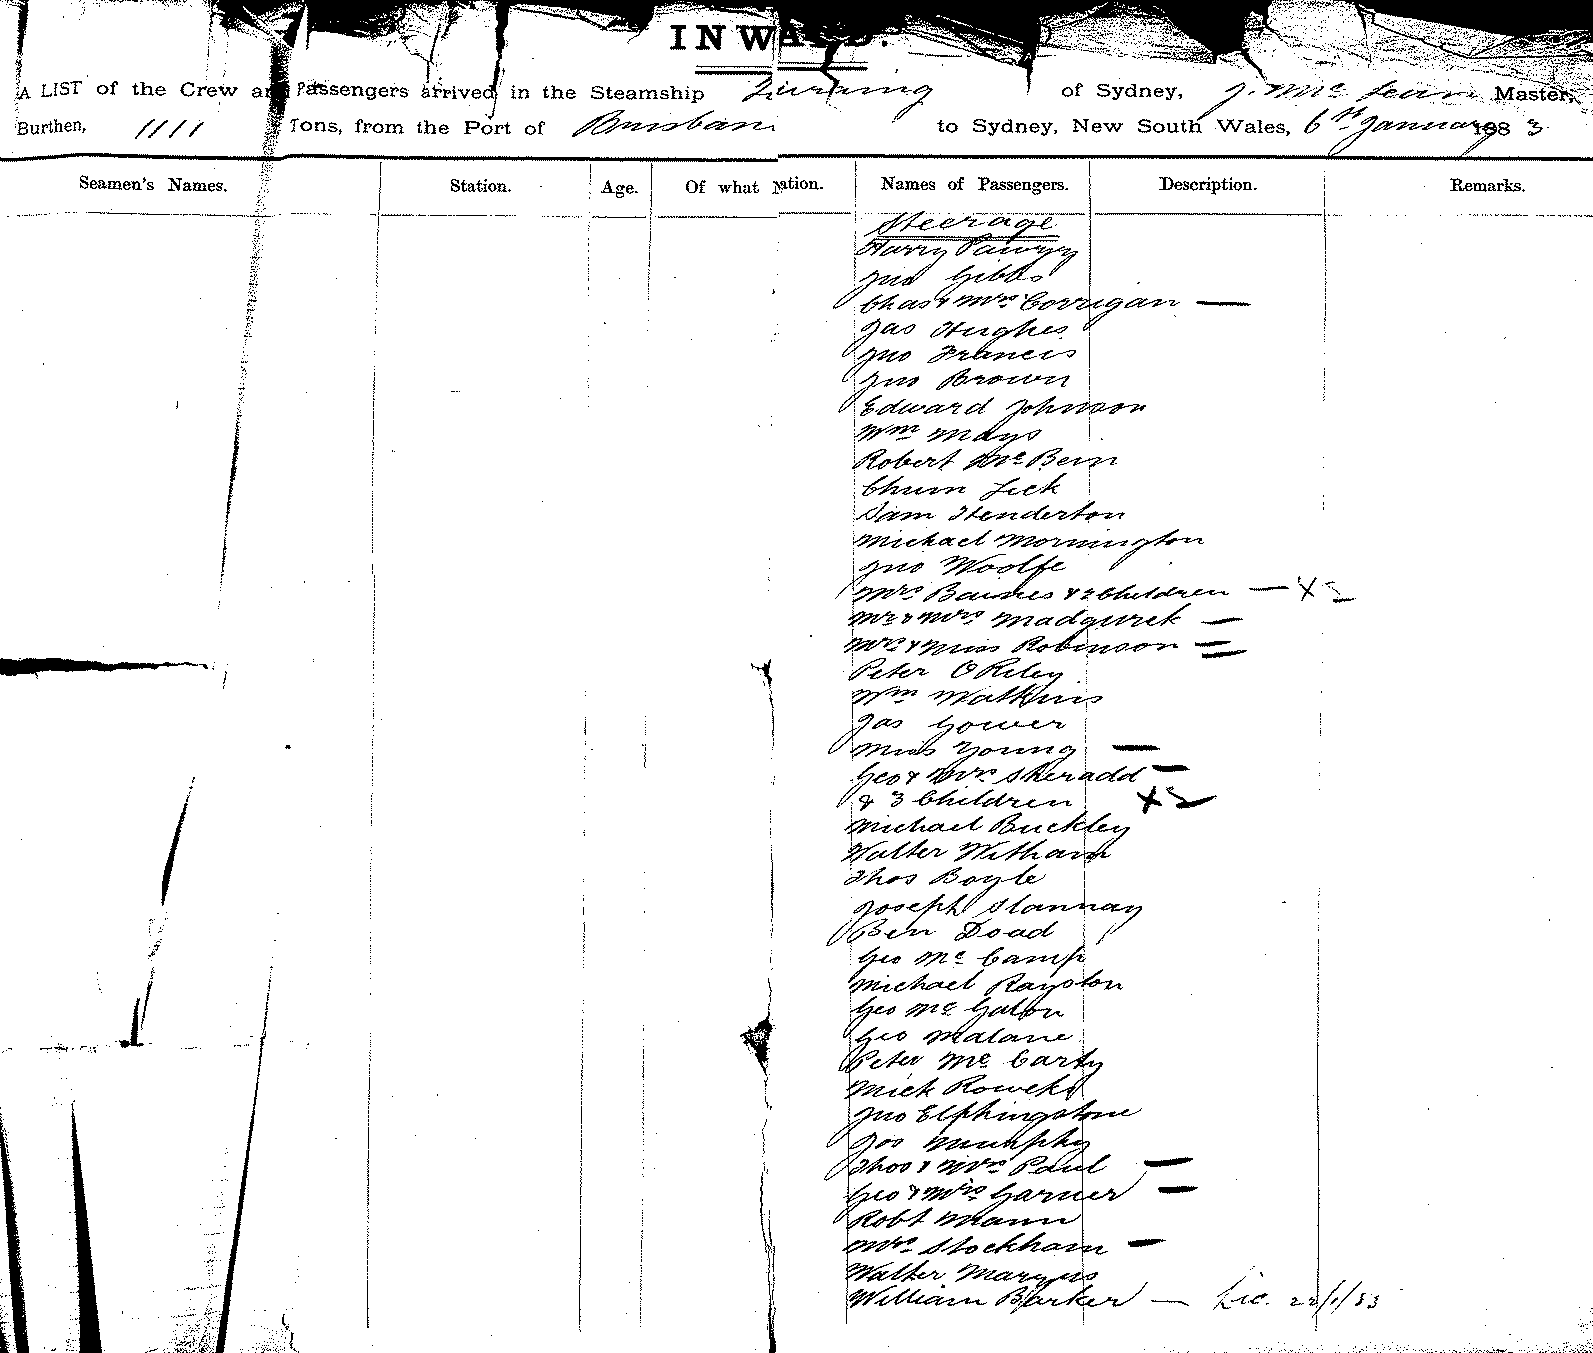 INWARD.
A LIST of the Crew and Passengers arrived in the Steamship of Sydney, J. Mc Lean Master,
Burthen, 1111 Tons, from the Port of Brisbane to Sydney, New South Wales, 6th January 1883
Seamen's Names. Station. Age. Of what Nation. Names of Passengers. Description. Remarks.
Steerage
Harry
Jno Gibbs
Chas & Mrs Corrigan —
Jas Hughes
Jno Francis
Jno Brown
Edward Johnson
Wm Mays
Robert McBern
Chum Lick
Sam Henderton
Michael Mornington
Jno Woolfe
Mrs Baines & 2 Children — X 2
Mr & Mrs Madgwick —
Mrs & Miss Robinson =
Peter O Riley
Wm Watkins
Jas Gower
Miss Young —
Geo & Mrs Sheradd —
& 3 Children X 3
Michael Buckley
Walter Witham
Thos Boyle
Joseph Slannay
Ben Doad
Geo Mc Camp
Michael Rayston
Geo Mc Galon
Geo Malane
Peter Mc Carty
Mick
Jno Elphingstone
Jos Murphy
Thos & Mrs Paul —
Geo & Mrs Garner —
Robt Mann
Mrs Stockham —
Walter
William Barker — Lic. 22/1/83